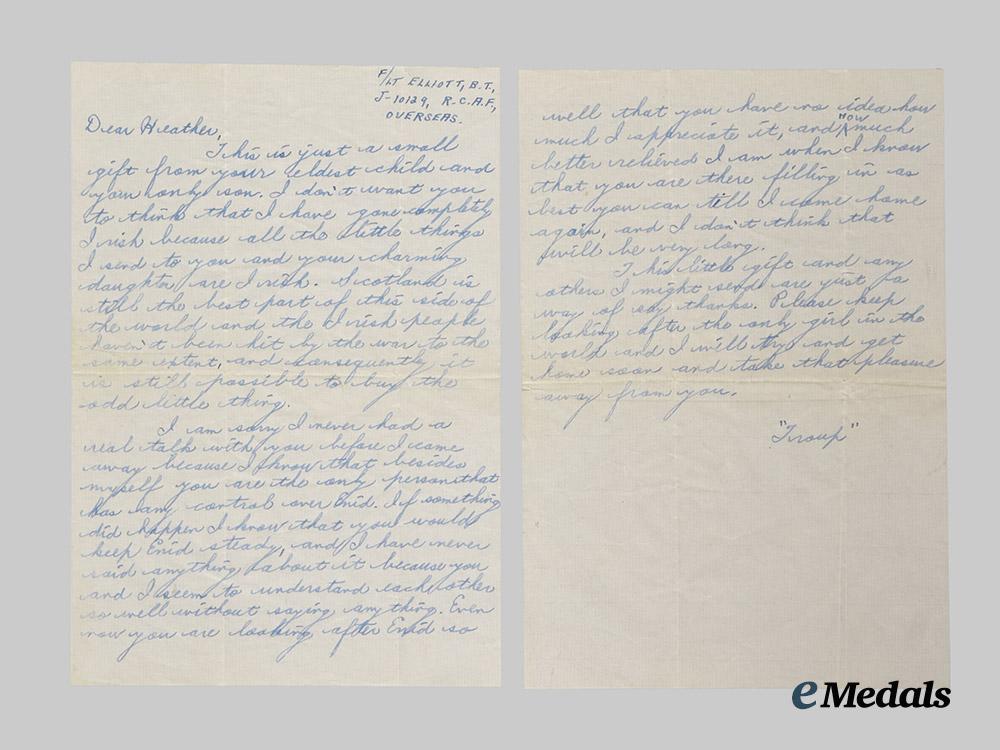 F/LT ELLIOTT, B.T.,
J-10129, R.C.A.F.,
OVERSEAS.
Dear Heather,
This is just a small
gift from your eldest child and
your only son. I don't want you
to think that I have gone completly
Irish because all the little things
I send to you and your charming
daughter are Irish. Scotland is
still the best part of this side of
the world and the Irish people
haven't been hit by the war to the
same extent, and consequently it
is still possible to buy the
odd little thing.
I am sorry I never had a
real talk with you before I came
away because I know that besides
myself you are the only person that
has any control over Enid. If something
did happen I know that you would
keep Enid steady, and I have never
said anything about it because you
and I seem to understand each other
so well without saying anything. Even
now you are looking after Enid so
well that you have no idea how
much I appreciate it, and HOW much
better relieved I am when I know
that you are there filling in as
best you can till I come home
again, and I don't think that
will be very long.
This little gift and any
others I might send are just a
way of say thanks. Please keep
looking after the only girl in the
world and I will try and get
home soon and take that pleasure
away from you.
"Troup"
eMedals